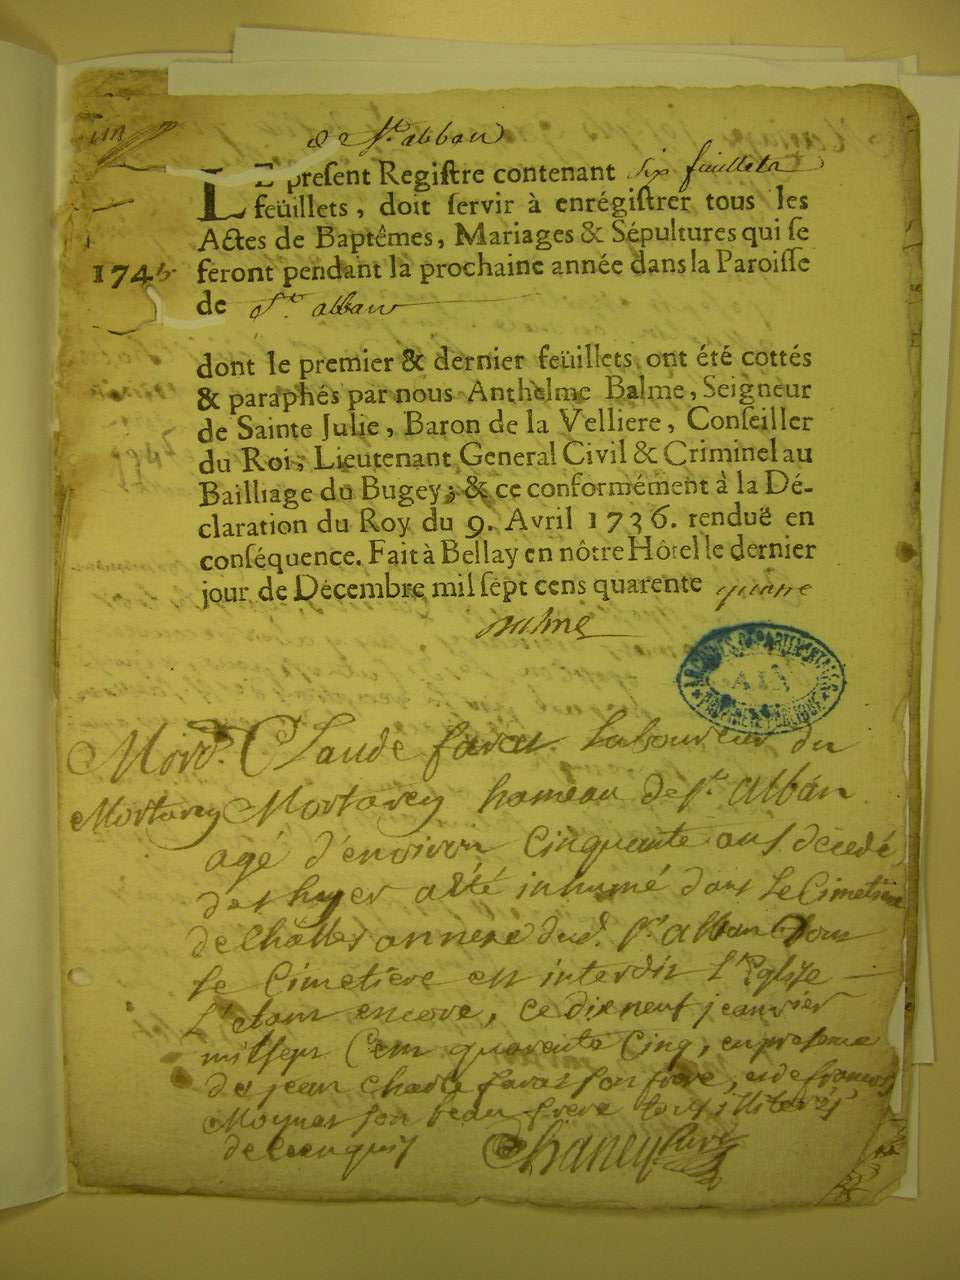 de St. alban
LE present Registre contenant six feuillets
feüillets, doit servir à enrégistrer tous les
Actes de Baptêmes, Mariages & Sépultures qui se
1745 feront pendant la prochaine année dans la Paroisse
de St. alban
dont le premier & dernier feüillets ont été cottés
& paraphés par nous Anthelme Balme, Seigneur
de Sainte Julie, Baron de la Velliere, Conseiller
du Roi, Lieutenant General Civil & Criminel au
Bailliage du Bugey; & ce conformément à la Dé-
claration du Roy du 9. Avril 1736. renduë en
conséquence. Fait à Bellay en nôtre Hôtel le dernier
jour de Décembre mil sept cens quarente quatre
Balme
ARCHIVES DEPARTEMENTALES
AIN
Mord. Claude favat Laboureur du
Mortarey Mortarey hameau de St. alban
agé d'environ Cinquante ans decedé
des hyer a été inhumé dans Le Cimetiere
de Challes annexe dud. St. alban dont
Le Cimetiere est interdit L'Eglise
L'etant encore, ce dixneuf jeanvier
mil sept Cent quarente Cinq, en presence
de jean Charle favat son frere, et de francois
Moynat son beau frere tous illiterés
de ce enquis Chaney Curé